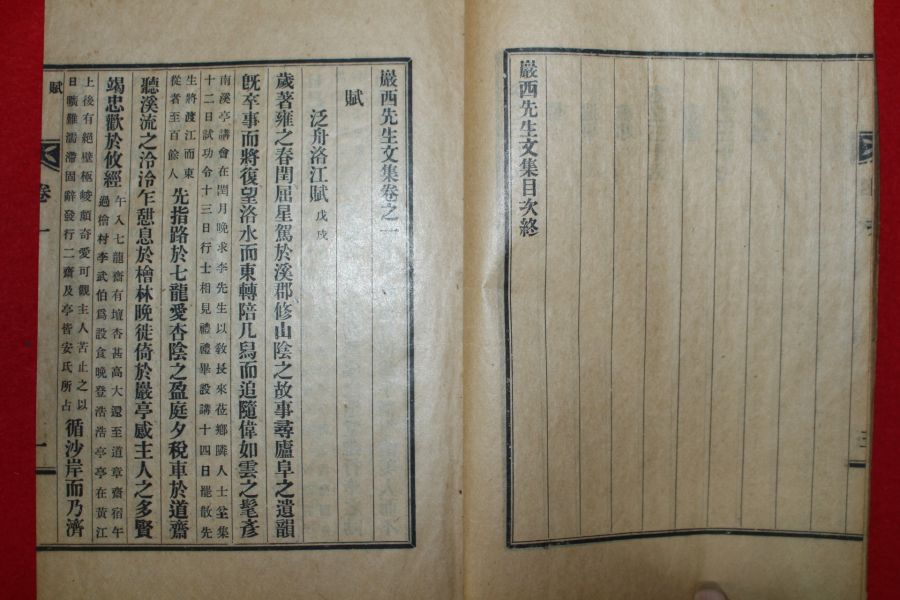 巖西先生文集目次終
三
巖西先生文集卷之一
賦
泛舟洛江賦 戊戌
歲著雍之春閏屈星駕於溪郡修山陰之故事尋廬阜之遺韻
旣卒事而將復望洛水而東轉陪几舃而追隨偉如雲之髦彥
南溪亭講會在閏月晚求李先生以敎長來莅鄉隣人士坌集
十二日試功令十三日行士相見禮禮畢設講十四日罷散先
生將渡江而東
從者至百餘人
先指路於七龍愛杏陰之盈庭夕稅車於道齋
聽溪流之泠泠乍憩息於檜林晚徙倚於巖亭感主人之多賢
竭忠歡於攸經
午入七龍齋有壇杏甚高大還至道章齋宿午
過檜村李武伯爲設食晚登浩浩亭亭在黃江
上後有絕壁極峻頗奇愛可觀主人苦止之以
日曠難濡滯固辭發行二齋及亭皆安氏所占
循沙岸而乃濟
賦
卷一
一